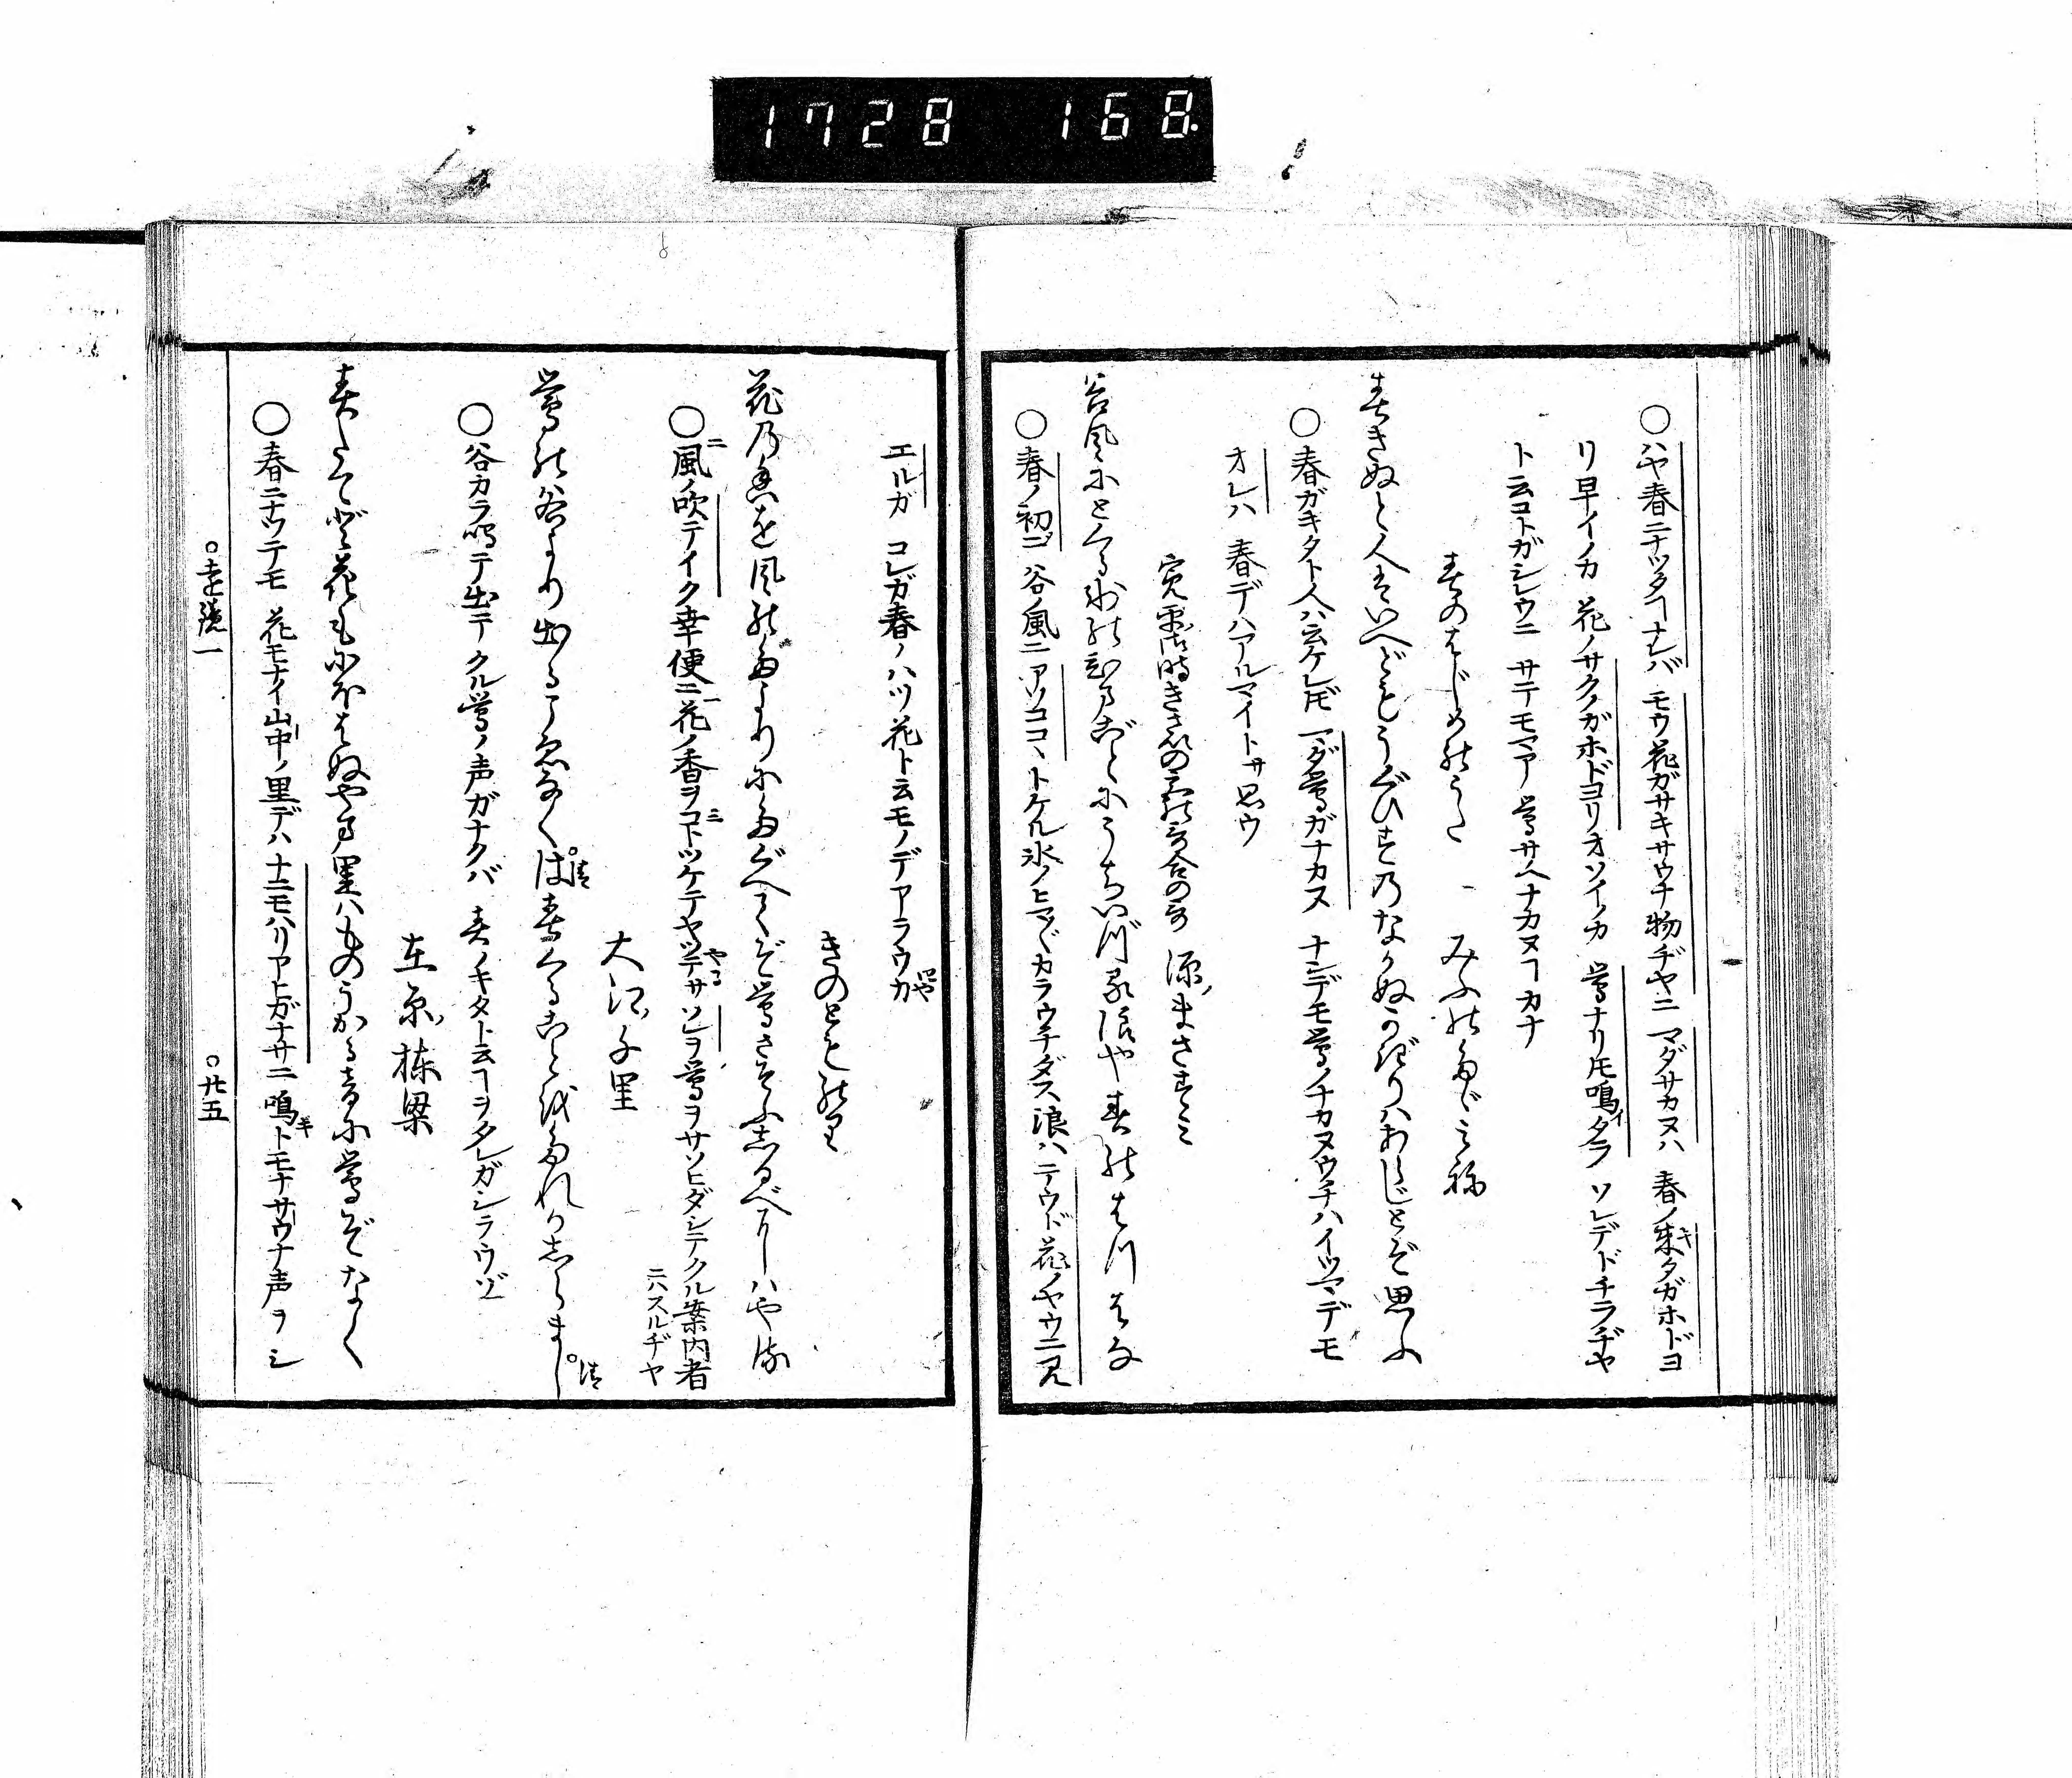 1728 168.
○ハヤ春ニナツタヿナレバ モウ花ガサキサウナ物ヂヤニ マダサカヌハ 春ノ来タガホドヨ
リ早イノカ 花ノサクノガホドヨリオソイノカ 鶯ナリ𪜈鳴タラ ソレデドチラヂヤ
ト云コトガシレウニ サテモマア 鶯サヘナカヌヿカナ
春のはじめのうた みふのたゞみね
春きぬと人はいへどもうぐひすのなかぬかぎりハあらじとぞ思ふ
○春ガキタト人ハ云ケレ𪜈 マダ鶯ガナカヌ ナンデモ鶯ノナカヌウチハイツマデモ
オレハ 春デハアルマイトサ思ウ
寛平御時きさいの宮の哥合の哥 源ノまさずミ
谷風にとくる氷のひまごとにうちいづる浪や春のはつはな
○春ノ初ニ 谷ノ風ニ アソココヽトケル氷ノヒマカラウチダス浪ハ テウド花ノヤウニ見
エルガ コレガ春ノハツ花ト云モノデアラウカ
きのとものり
花の香を風のたよりにたぐへてぞ鶯さそふしるべにハやる
○風ノ吹テイク幸便ニ花ノ香ヲコトツケテヤツテサ ソレヲ鶯ヲサソヒダシテクル案内者
ニハスルヂヤ
大江ノ千里
鶯の谷より出るこゑなくは春くることをたれかしらまし
○谷カラ鳴テ出テ クル鶯ノ声ガナクバ 春ノキタト云ヿヲタレガシラウゾ
在原ノ棟梁
春たてど花もにほはぬやま里ハものうかる音に鶯ぞなく
○春ニナツテモ 花モナイ山中ノ里デハ ナニモハリアヒガナサニ 鳴トモナサウナ声ヲシ
○遠鏡一
○廿五